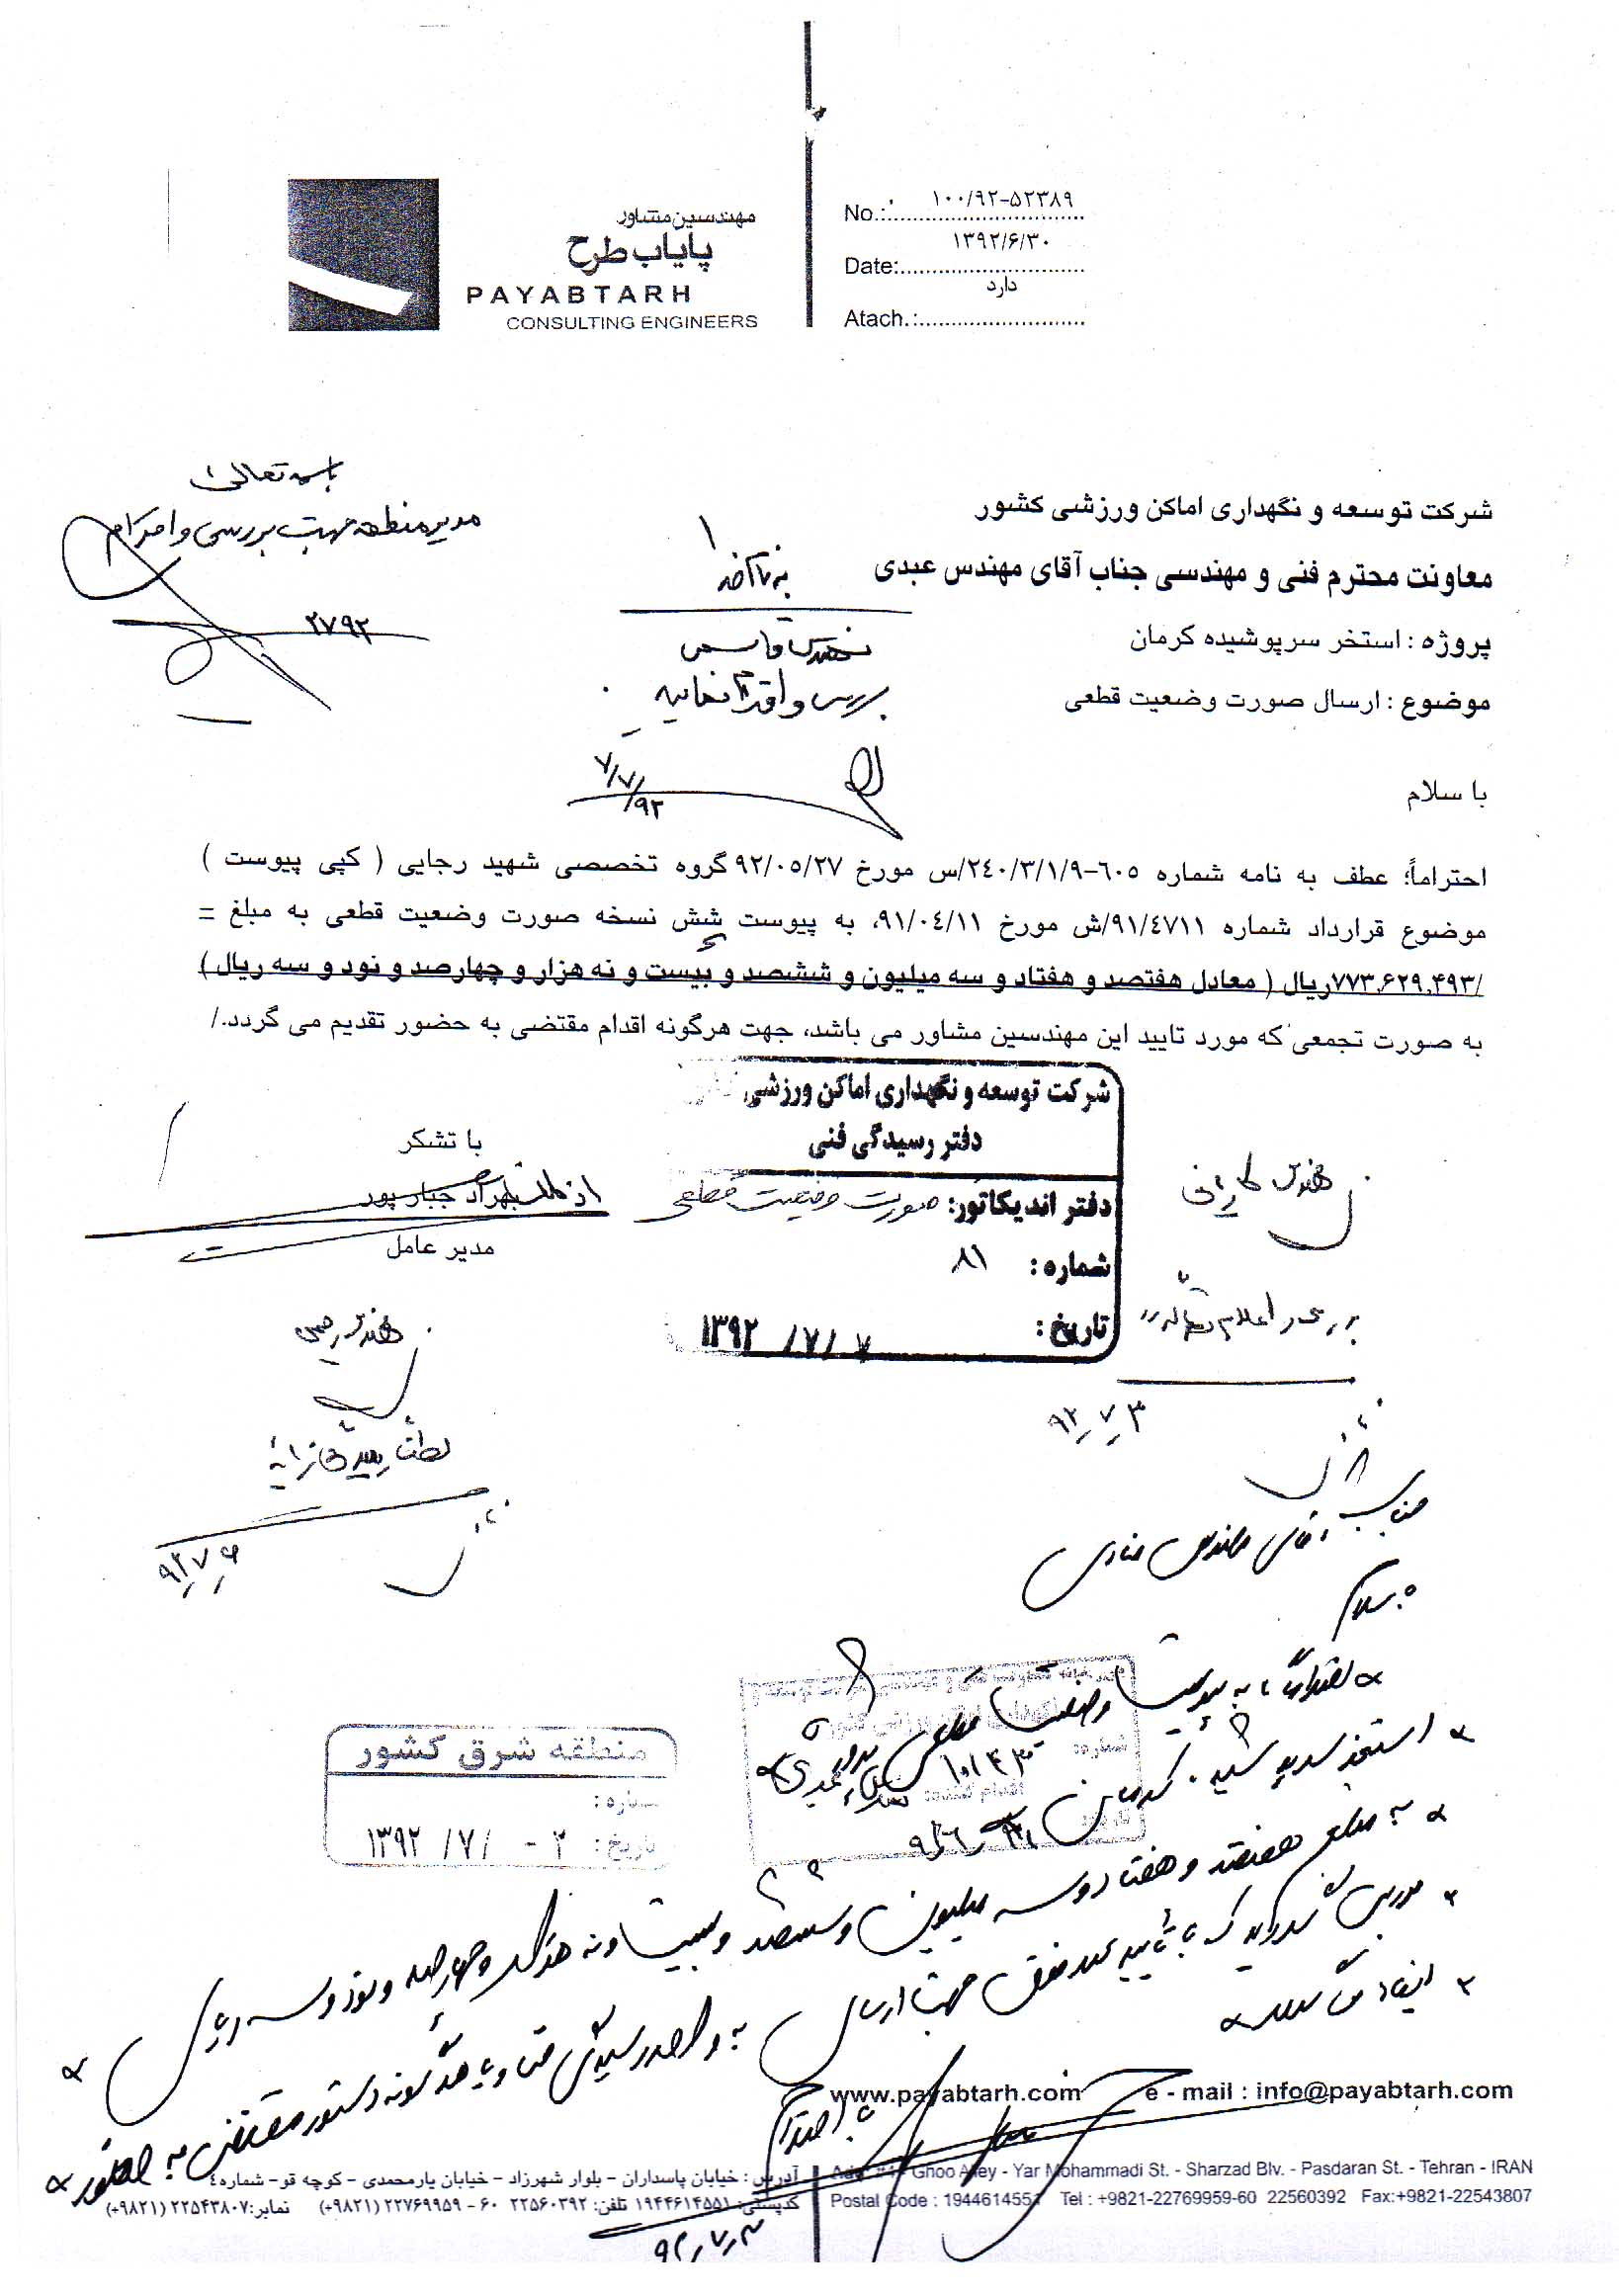 مهندسین مشاور
پایاب طرح
PAYABTARH
CONSULTING ENGINEERS
No.: ۱۰۰/۹۲-۵۲۳۸۹
Date: ۱۳۹۲/۶/۳۰
Atach.: دارد
باسمه تعالی
مدیر منطقه جهت بررسی و اقدام
شرکت توسعه و نگهداری اماکن ورزشی کشور
معاونت محترم فنی و مهندسی جناب آقای مهندس عبدی
پروژه : استخر سرپوشیده کرمان
موضوع : ارسال صورت وضعیت قطعی
بررسی و اقدام نمایید
۹۲/۷/۷
با سلام
احتراماً؛ عطف به نامه شماره ۶۰۵-۲۴۰/۳/۱/۹/س مورخ ۹۲/۰۵/۲۷ گروه تخصصی شهید رجایی ( کپی پیوست )
موضوع قرارداد شماره ۹۱/٤۷۱۱/ش مورخ ۹۱/۰٤/۱۱، به پیوست شش نسخه صورت وضعیت قطعی به مبلغ =
/۷۷۳,۶۲۹,۴۹۳ریال ( معادل هفتصد و هفتاد و سه میلیون و ششصد و بیست و نه هزار و چهارصد و نود و سه ریال )
به صورت تجمعی که مورد تایید این مهندسین مشاور می باشد، جهت هرگونه اقدام مقتضی به حضور تقدیم می گردد./
با تشکر
بهزاد جبارپور
مدیر عامل
شرکت توسعه و نگهداری اماکن ورزشی
دفتر رسیدگی فنی
دفتر اندیکاتور: صورت وضعیت قطعی
شماره : ۸۱
تاریخ : ۱۳۹۲/۷/۷
۹۲/۷/۳
۹۲/۷/۶
جناب آقای مهندس
سلام
به پیوست وضعیت قطعی
استخر سرپوشیده کرمان
به مبلغ هفتصد و هفتاد و سه میلیون و ششصد و بیست و نه هزار و چهارصد و نود و سه ریال
جهت ارسال به واحد رسیدگی فنی و یا هرگونه دستور مقتضی به حضور
ایفاد می گردد
با احترام
۹۲/۷/۳
منطقه شرق کشور
شماره :
تاریخ : ۱۳۹۲/۷/ - ۲
شماره: ۱۰۱۴۳۰
اقدام کننده:
www.payabtarh.com e - mail : info@payabtarh.com
آدرس : خیابان پاسداران - بلوار شهرزاد - خیابان یارمحمدی - کوچه قو - شماره ٤
کدپستی: ۱۹۴۴۶۱۴۵۵۱ تلفن: ۲۲۵۶۰۳۹۲ ۶۰ - ۲۲۷۶۹۹۵۹ (۹۸۲۱+) نمابر: ۲۲۵۴۳۸۰۷ (۹۸۲۱+)
Add: #4 - Ghoo Alley - Yar Mohammadi St. - Sharzad Blv. - Pasdaran St. - Tehran - IRAN
Postal Code : 1944614551 Tel : +9821-22769959-60 22560392 Fax:+9821-22543807